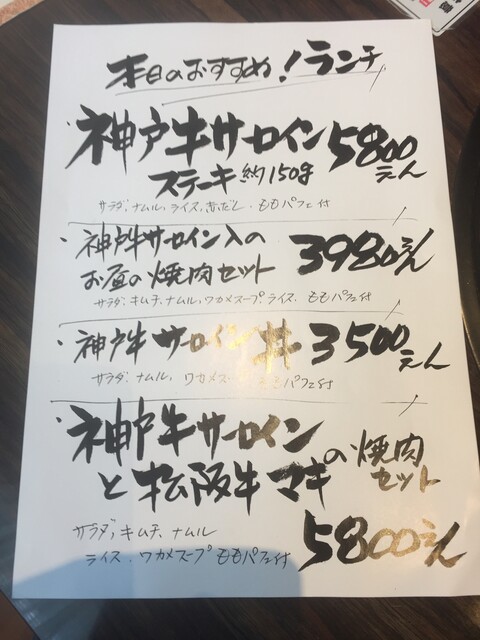 本日のおすすめ！ランチ
・神戸牛サーロイン 5800えん
ステーキ 約150g
サラダ、ナムル、ライス、赤だし、ももパフェ付
・神戸牛サーロイン入の 3980えん
お昼の焼肉セット
サラダ、キムチ、ナムル、ワカメスープ、ライス、ももパフェ付
・神戸牛サーロイン丼 3500えん
サラダ、ナムル、ワカメスープ ももパフェ付
・神戸牛サーロイン
と松阪牛マキの焼肉セット
サラダ、キムチ、ナムル
ライス、ワカメスープ ももパフェ付 5800えん